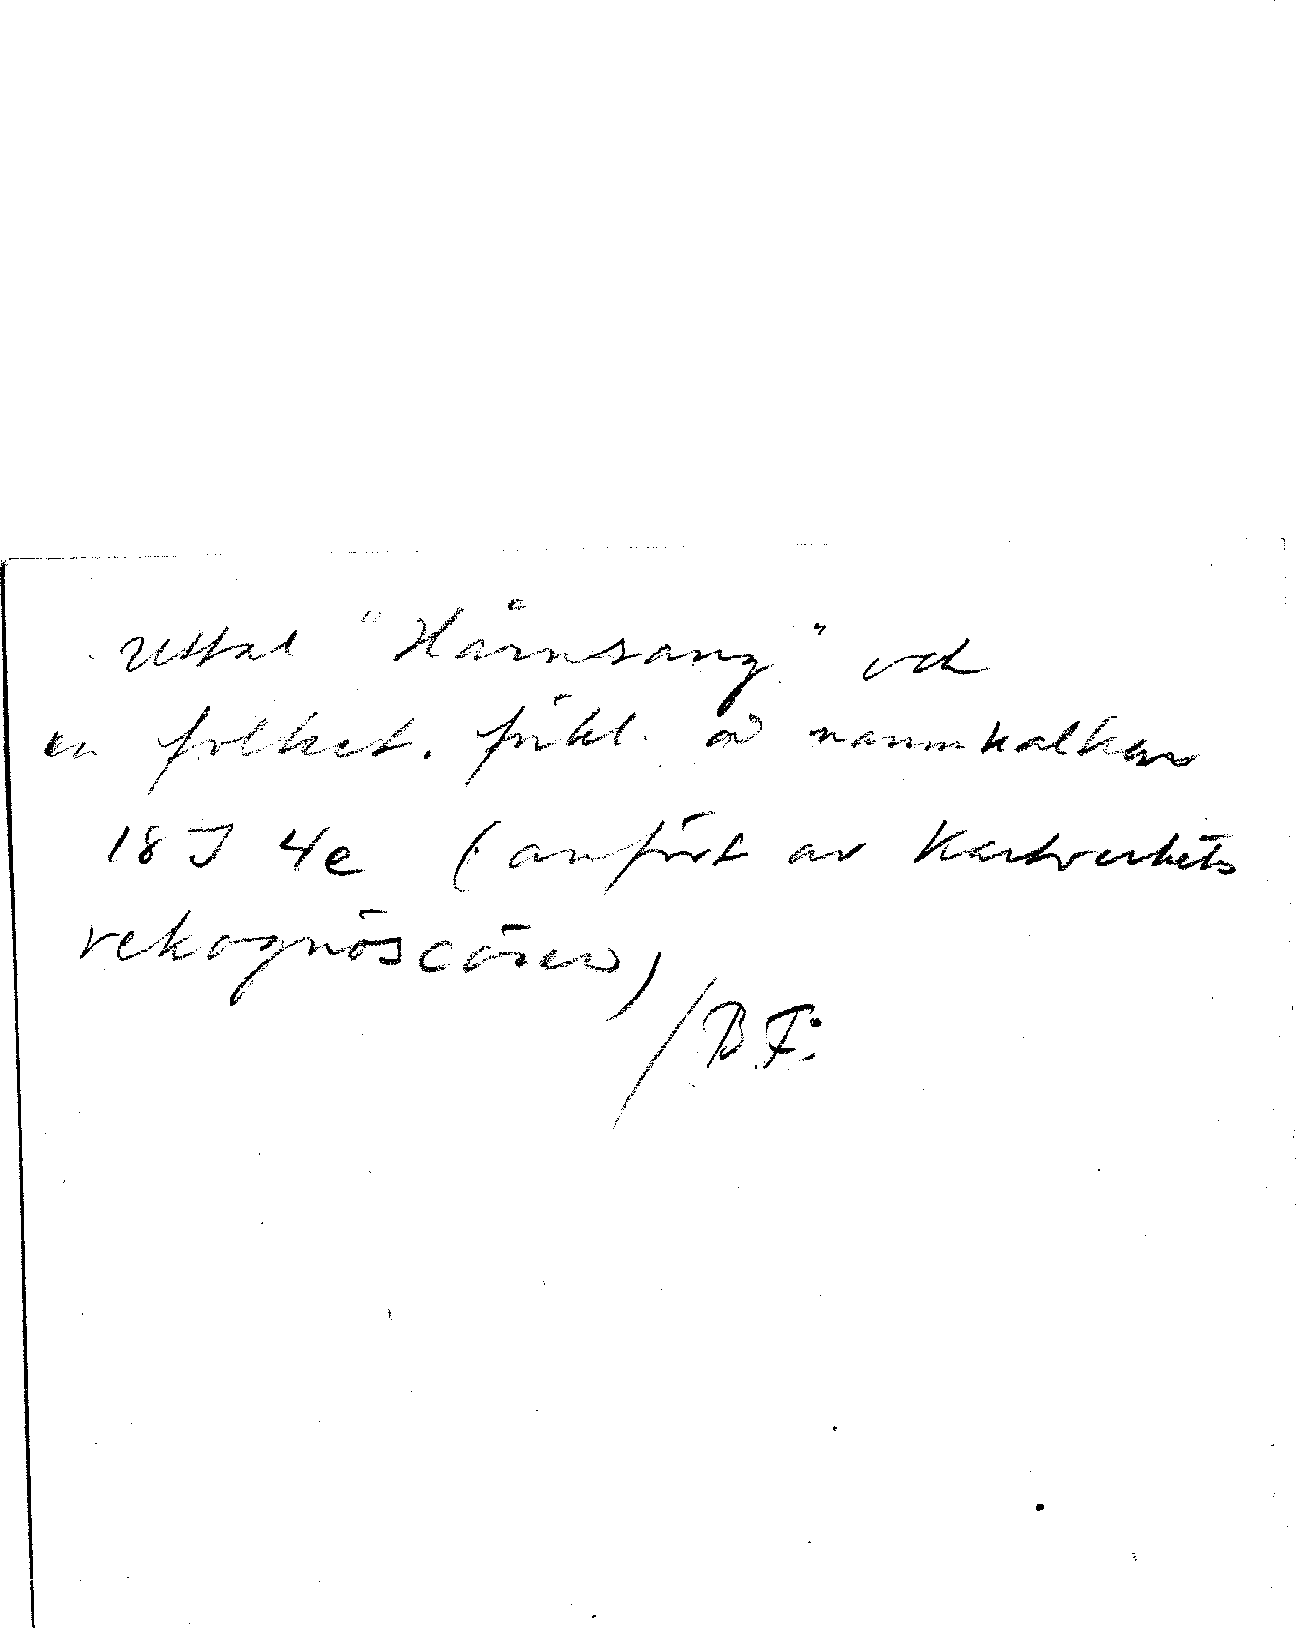 Uttal "Hårnsang" och
en folket. förkl. å namnkalken
18 J 4e (anfört av Kartverkets
rekognoscörer)
/B.F: